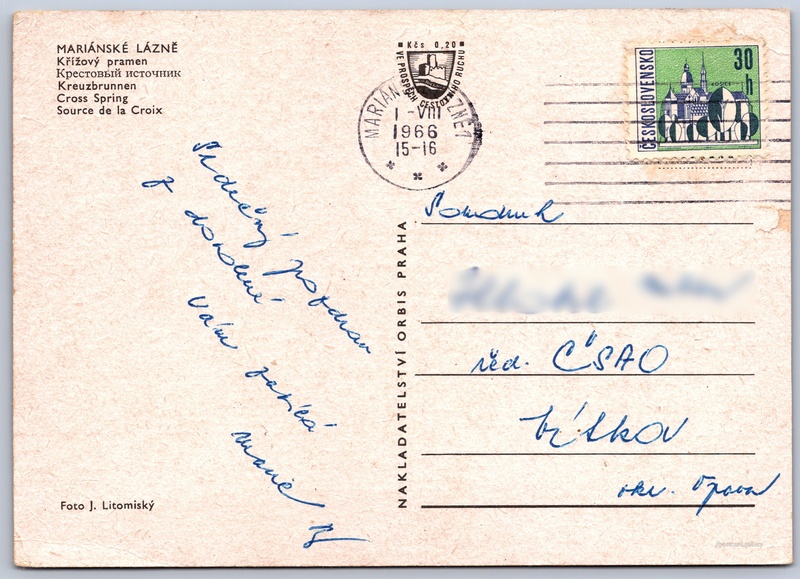 MARIÁNSKÉ LÁZNĚ
Křížový pramen
Крестовый источник
Kreuzbrunnen
Cross Spring
Source de la Croix
Kčs 0,20
VE PROSPĚCH CESTOVNÍHO RUCHU
MARIÁNSKÉ LÁZNĚ 1
1-VIII
1966
15-16
ČESKOSLOVENSKO
30 h
Srdečný pozdrav
z dovolené
Vám zasílá
Marie
NAKLADATELSTVÍ ORBIS PRAHA
Soudruh
řed. ČSAO
Vítkov
okr. Opava
Foto J. Litomiský